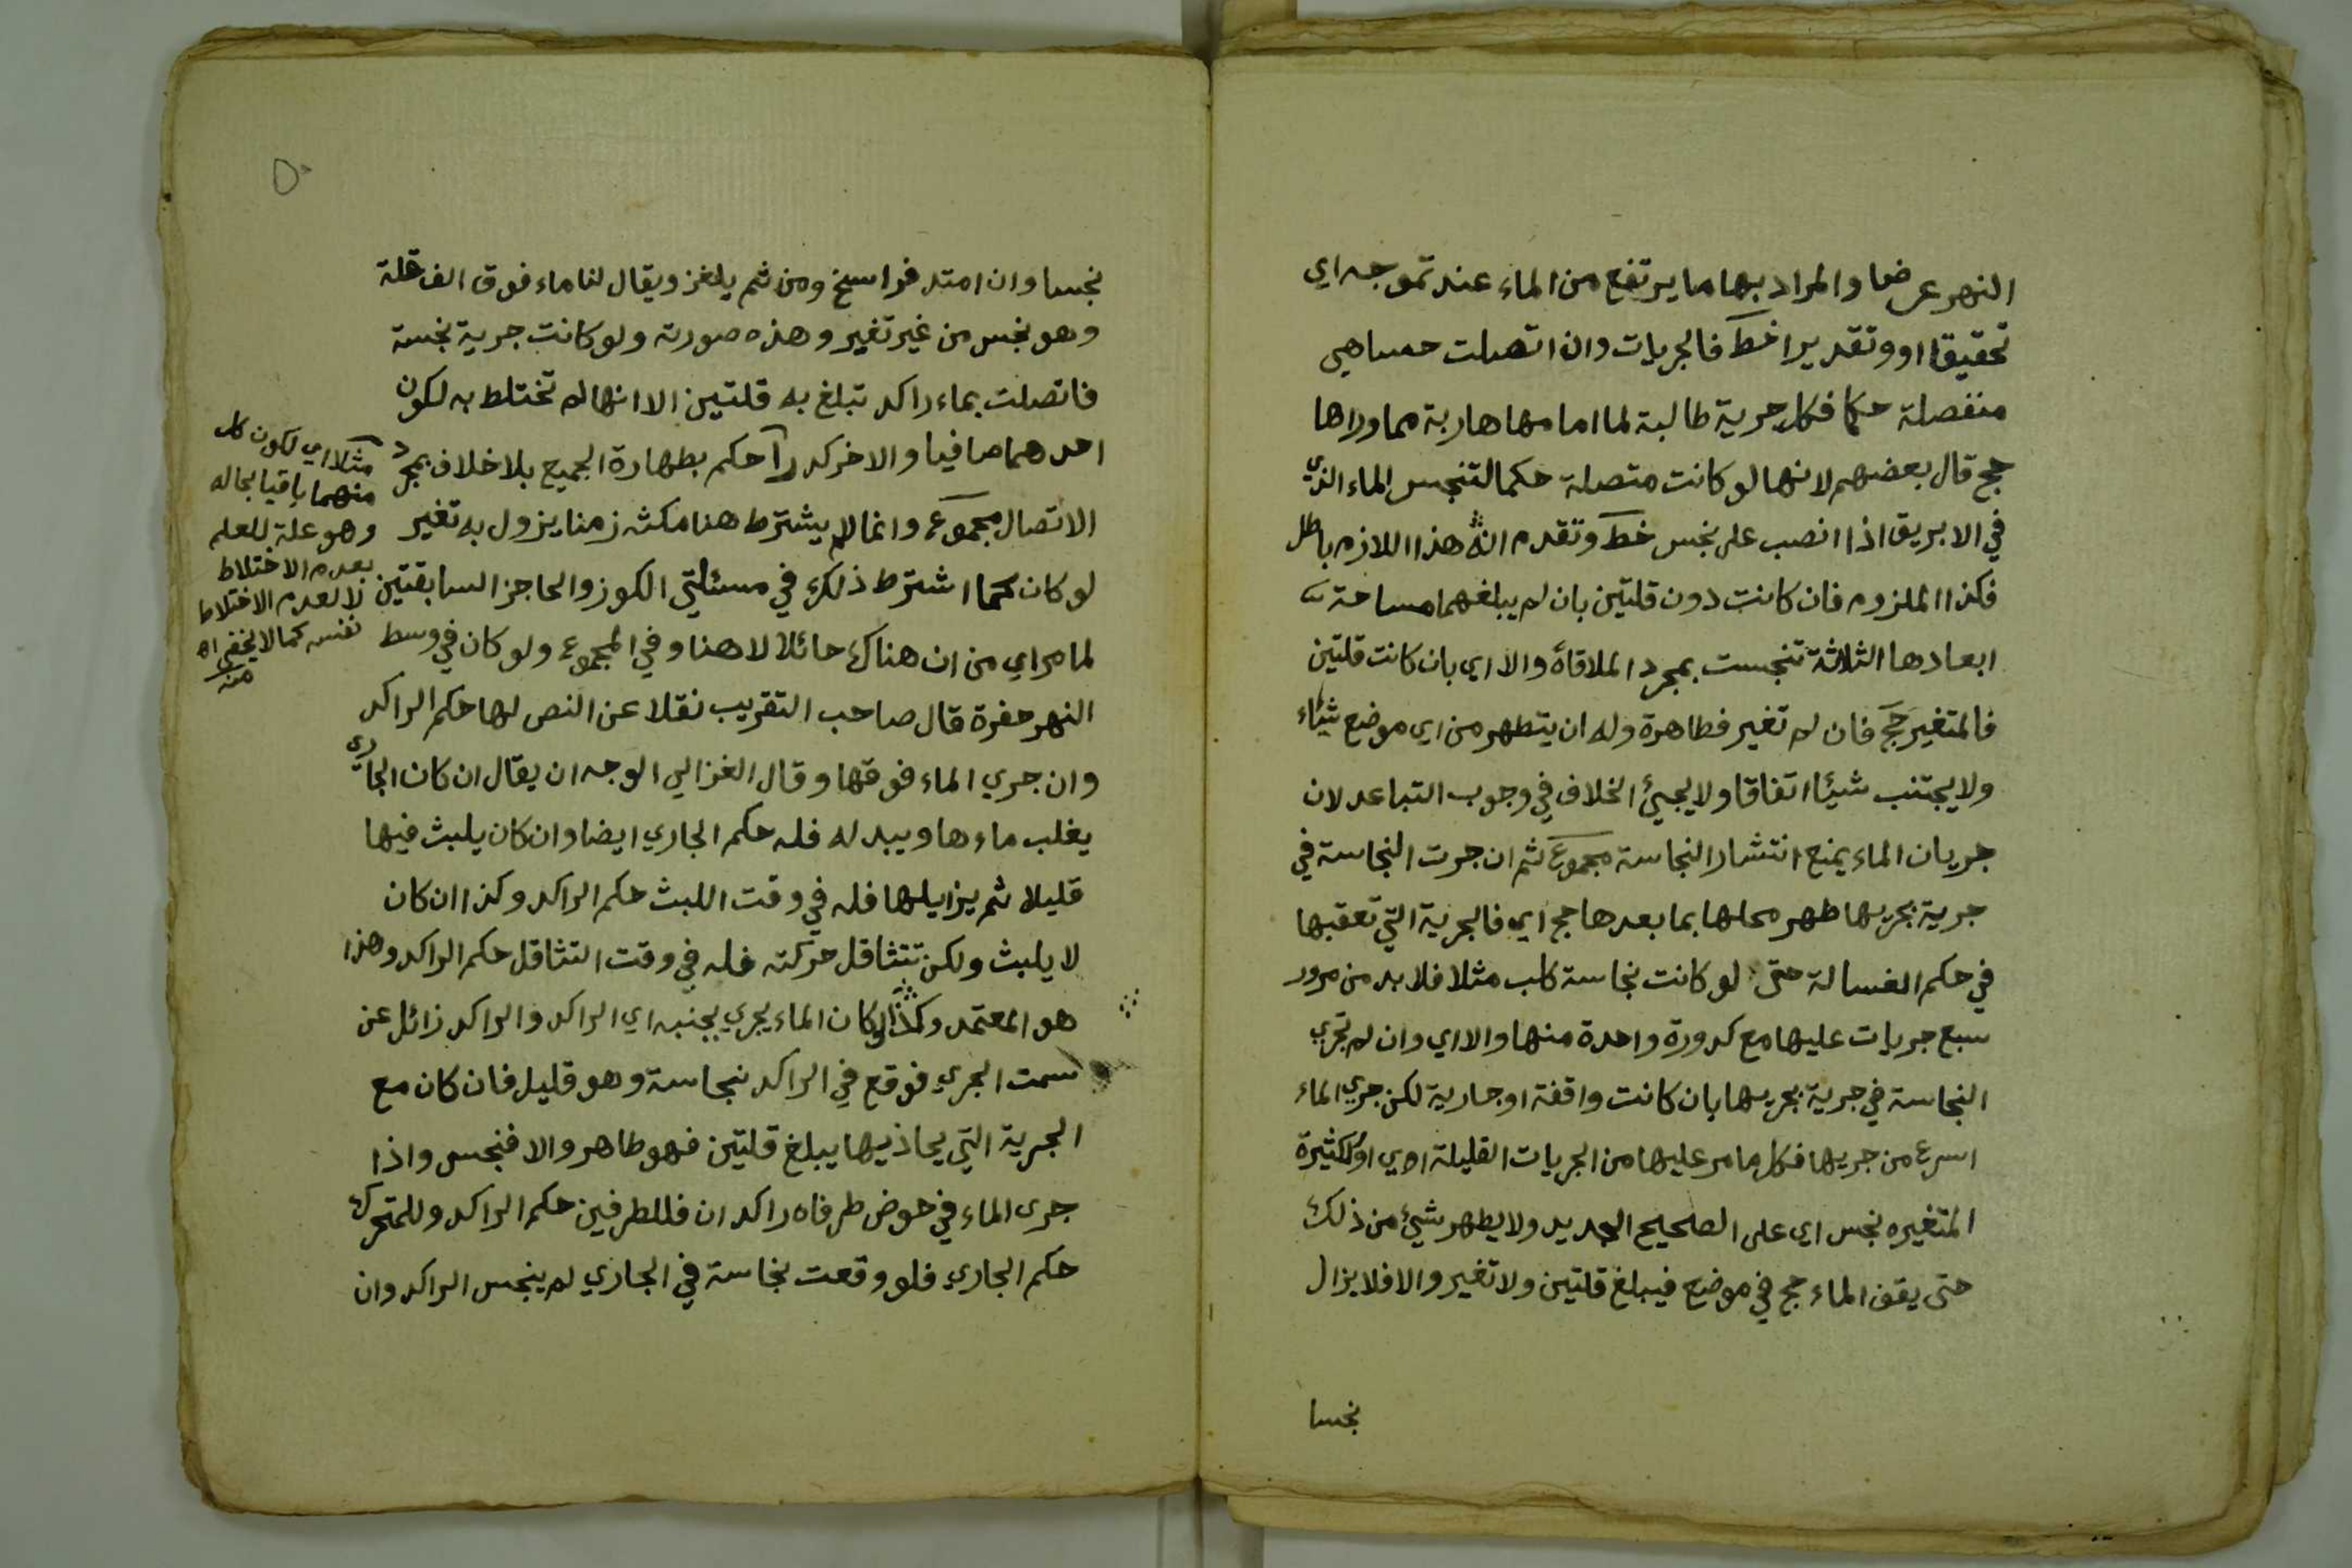 النهر عرضا والمراد بها ما يرتفع من الماء عند تموجه اي
تحقيقا او وتقديرا خط فالجريات وان اتصلت حسا هي
منفصلة حكما فكل جرية طالبة لما امامها هاربة مما وراها
حج قال بعضهم لانها لو كانت متصلة حكما لتنجس الماء الذي
في الابريق اذا انصب على نجس خط وتقدم ان هذا اللازم باطل
فكذا الملزوم فان كانت دون قلتين بان لم يبلغهما مساحة
ابعادها الثلاثة تنجست بمجرد الملاقاة والا اي بان كانت قلتين
فالمتغير حج فان لم تغير فطاهرة وله ان يتطهر من اي موضع شاء
ولا يجتنب شيئا اتفاقا ولا يجيئ الخلاف في وجوب التباعد لان
جريان الماء يمنع انتشار النجاسة مجموع ثم ان جرت النجاسة في
جرية بجريها طهر محلها بما بعدها حج اي فالجرية التي تعقبها
في حكم الغسالة حتى لو كانت نجاسة كلب مثلا فلا بد من مرور
سبع جريات عليها مع كدورة واحدة منها والا اي وان لم تجري
النجاسة في جرية بجريها بان كانت واقفة او جارية لكن جري الماء
اسرع من جريها فكل ما مر عليها من الجريات القليلة اوي او الكثيرة
المتغيره نجس اي على الصحيح الجديد ولا يطهر شيئ من ذلك
حتى يقف الماء حج في موضع فيبلغ قلتين ولا تغير والا فلا يزال
نجسا
٥٠
نجسا وان امتد فراسخ ومن ثم يلغز ويقال لنا ماء فوق الف قلة
وهو نجس من غير تغير وهذه صورته ولو كانت جرية نجسة
فاتصلت بماء راكد تبلغ به قلتين الا انها لم تختلط به لكون
احدهما صافيا والاخر كدرا حكم بطهارة الجميع بلا خلاف بمجرد
الاتصال مجموع وانما لم يشترط هنا مكثه زمنا يزول به تغير
لو كان كما اشترط ذلك في مسئلتي الكوز والحاجز السابقتين
لما مر اي من ان هناك حائلا لا هنا وفي المجموع ولو كان في وسط
النهر حفرة قال صاحب التقريب نقلا عن النص لها حكم الراكد
وان جري الماء فوقها وقال الغزالي الوجه ان يقال ان كان الجاري
يغلب ماءها ويبدله فله حكم الجاري ايضا وان كان يلبث فيها
قليلا ثم يزايلها فله في وقت اللبث حكم الراكد وكذا ان كان
لا يلبث ولكن تتثاقل حركته فله في وقت التثاقل حكم الراكد وهذا
هو المعتمد وكذا لو كان الماء يجري بجنبه اي الراكد والراكد زائل عن
سمت الجري فوقع في الراكد نجاسة وهو قليل فان كان مع
الجرية التي يحاذيها يبلغ قلتين فهو طاهر والا فنجس واذا
جرى الماء في حوض طرفاه راكدان فللطرفين حكم الراكد وللمتحرك
حكم الجاري فلو وقعت نجاسة في الجاري لم ينجس الراكد وان
مثلا اي لكون كل
منهما باقيا بحاله
وهو علة للعلم
بعدم الاختلاط
لا لعدم الاختلاط
نفسه كما لا يخفى اه
منه